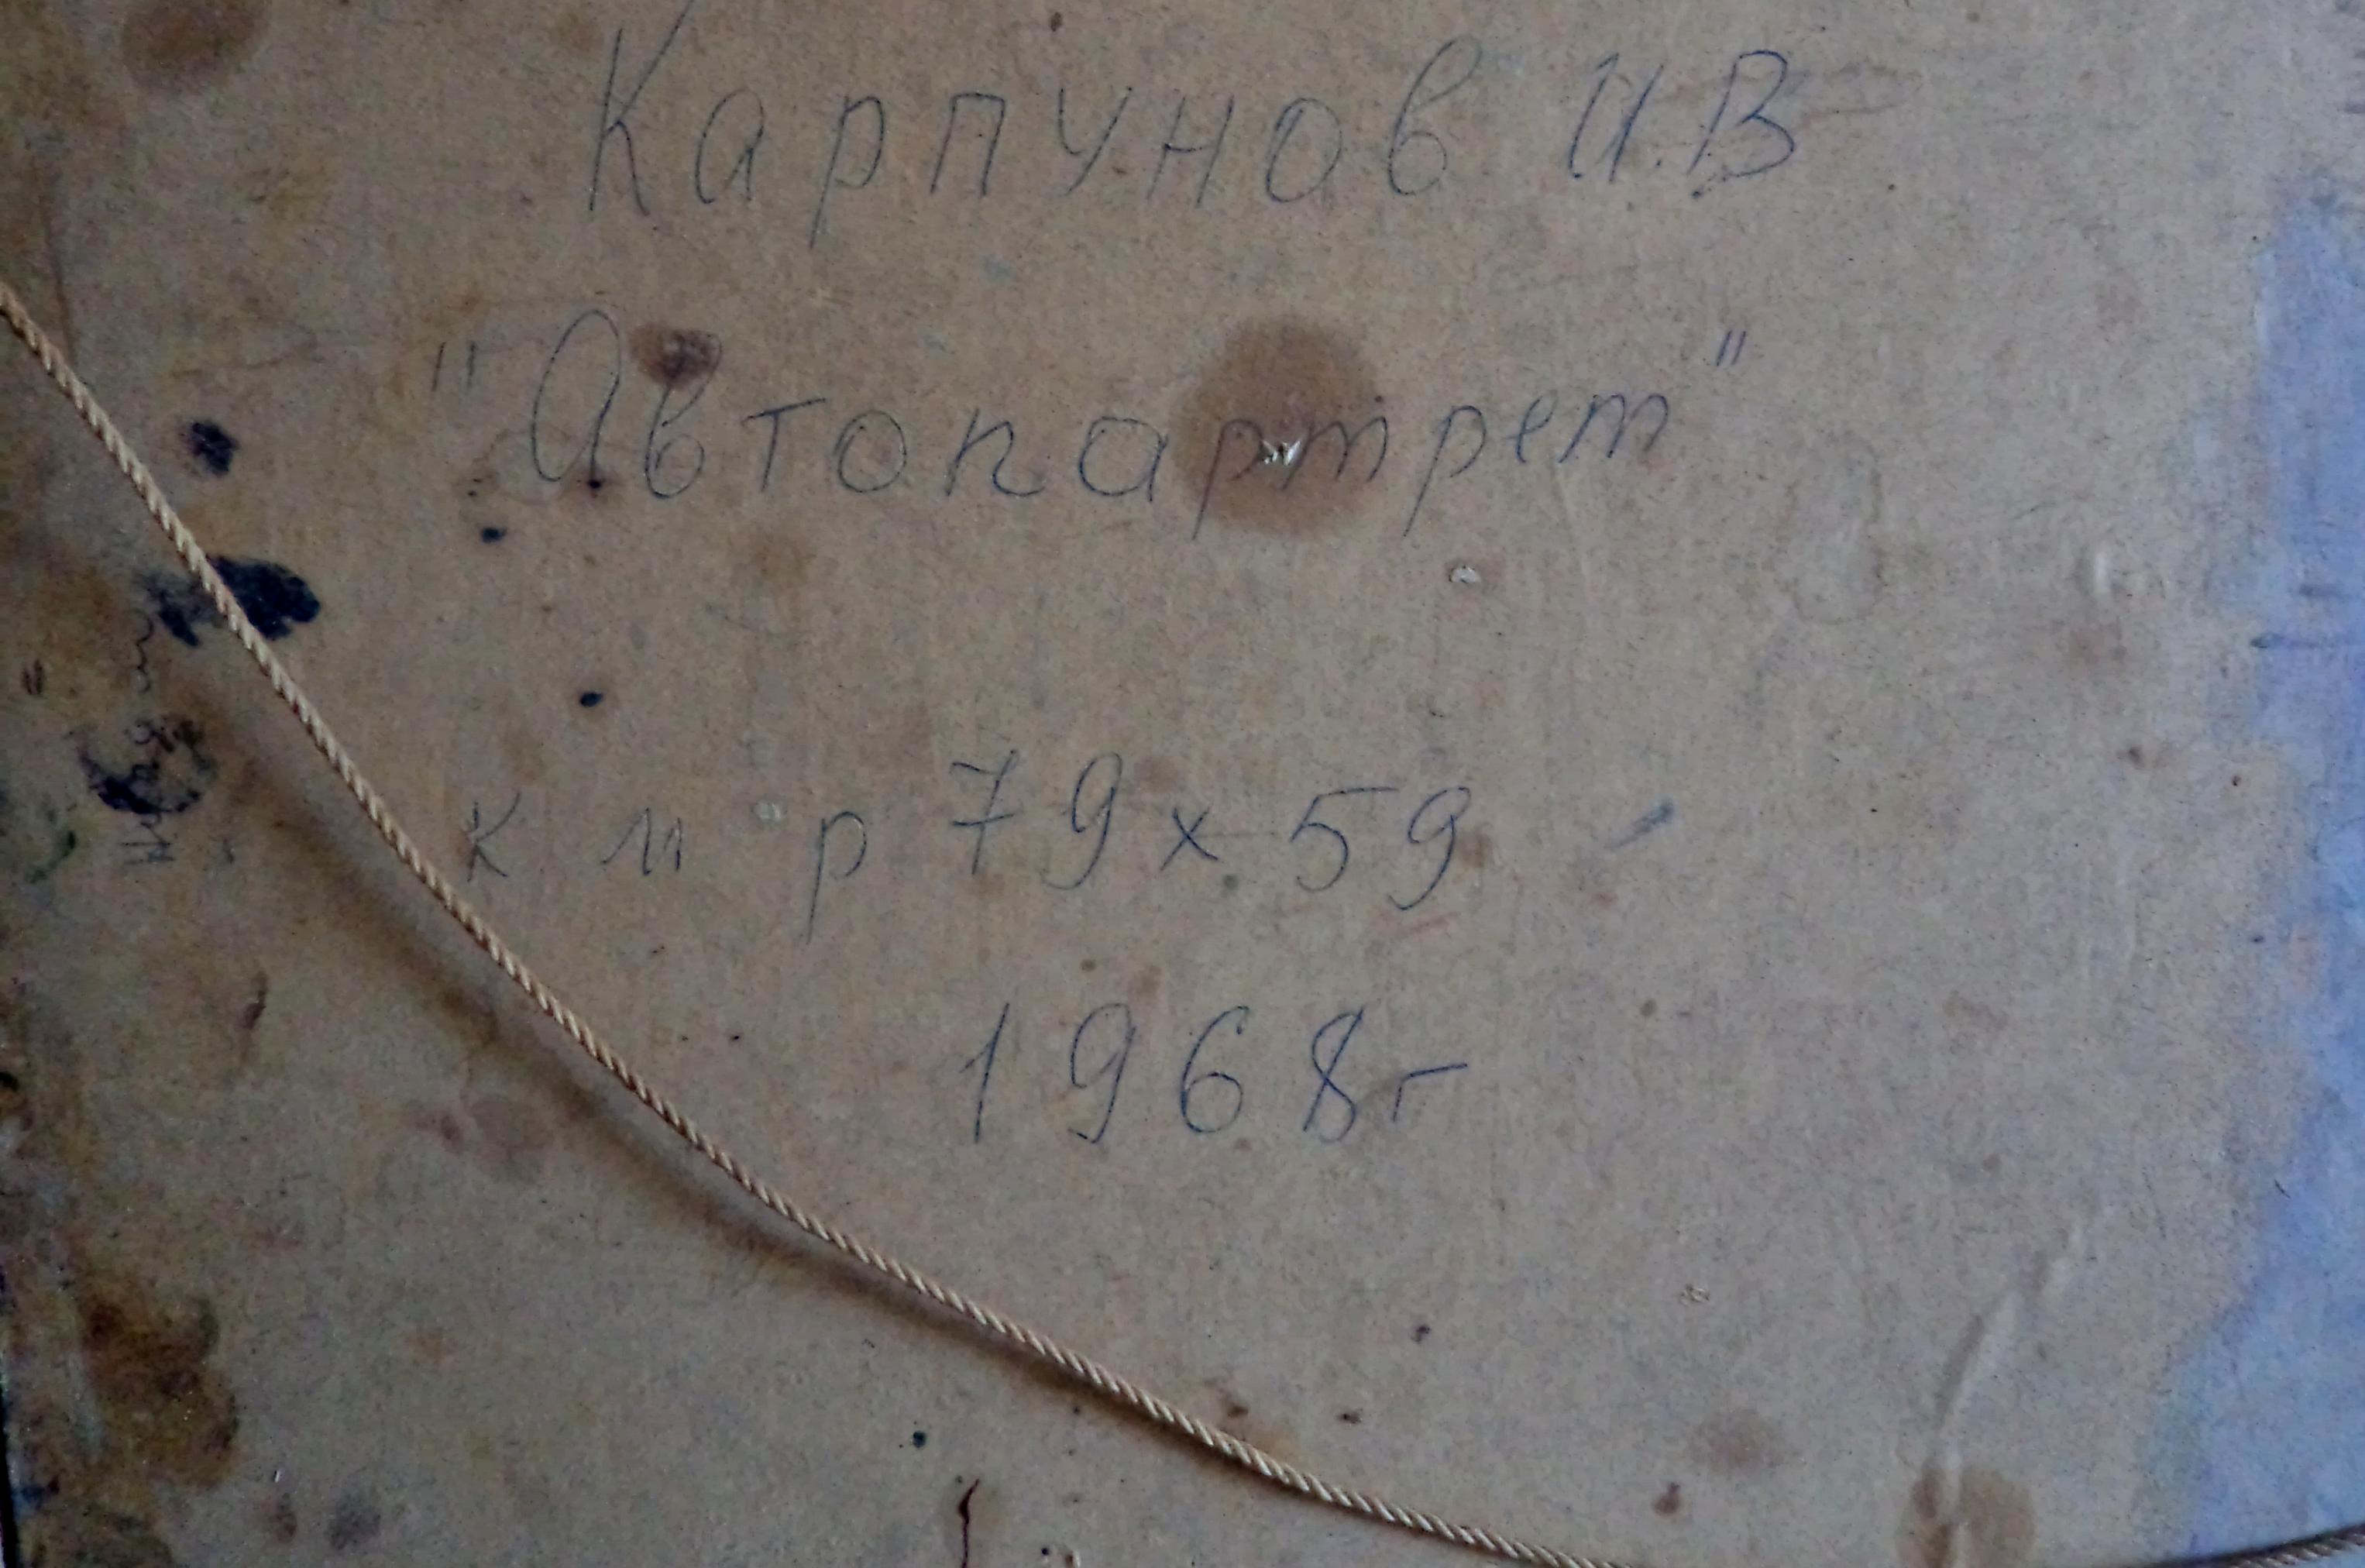 Карпунов И.В
"Автопартрет"
к м р 79х59
1968г